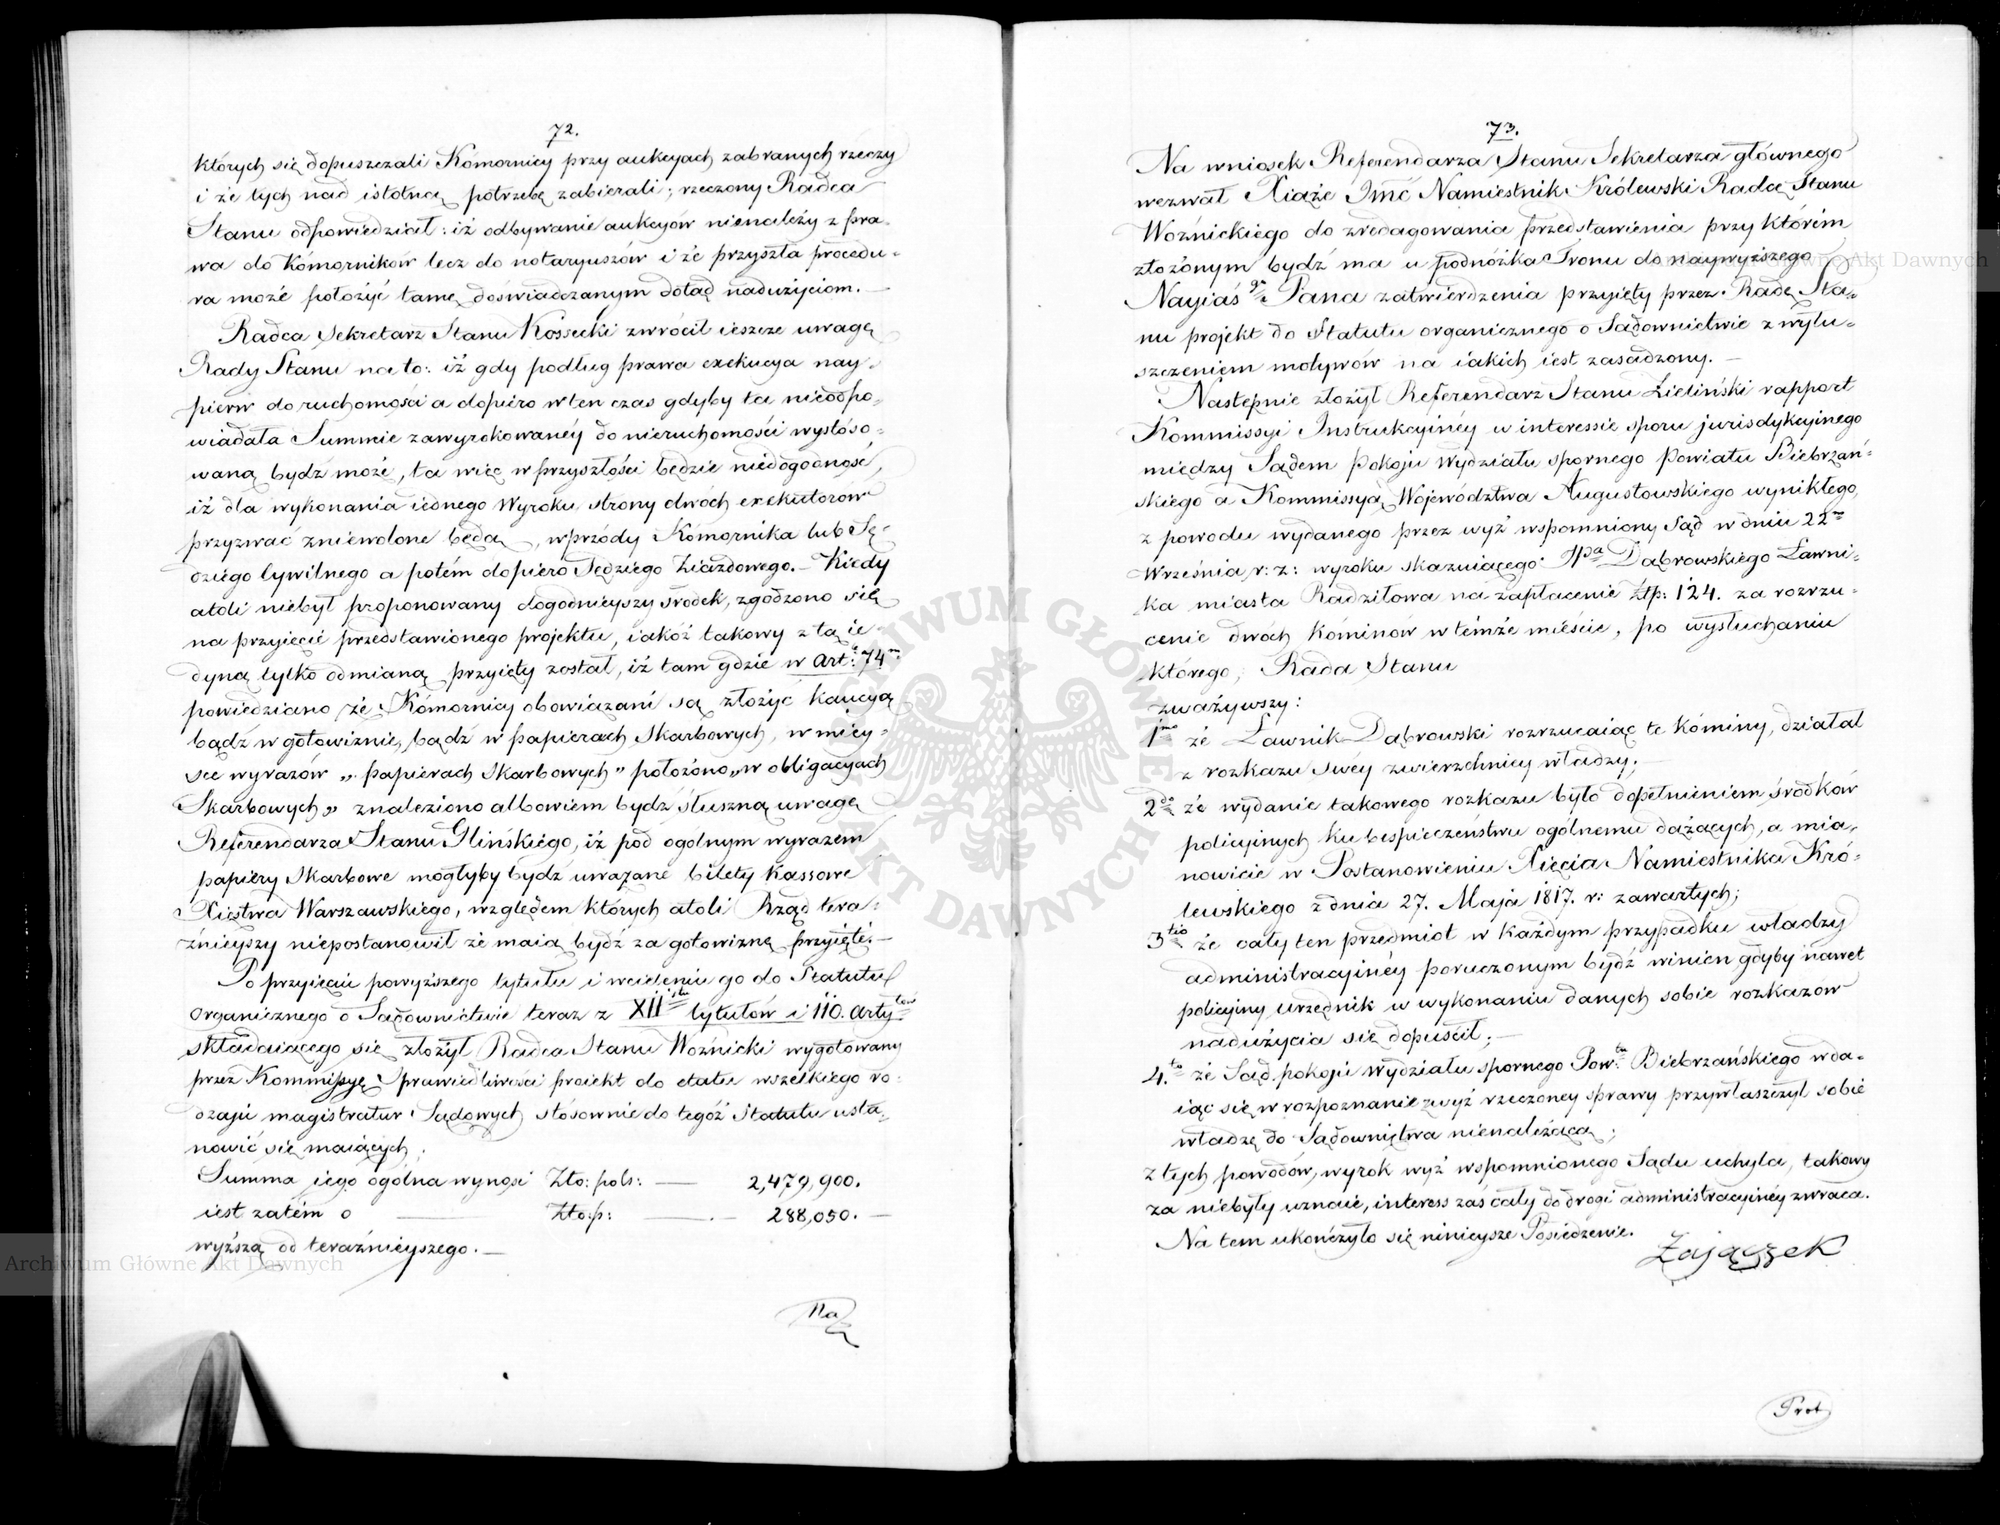 72.
których się dopuszczali Kómornicy przy aukcyach zabranych rzeczy
i że tych nad istotną potrzebę zabierali; rzeczony Radca
Stanu odpowiedział: iż odbywanie aukcyów nienależy z pra-
wa do Kómorników lecz do notaryuszów i że przyszła procedu-
ra może położyć tamę doświadczanym dotąd nadużyciom.—
Radca Sekretarz Stanu Kossecki zwrócił ieszcze uwagę
Rady Stanu na to: iż gdy podług prawa exekucya nay-
pierw do ruchomości a dopiero w ten czas gdyby ta nieodpo-
wiadała Summie zawyrokowanéy do nieruchomości wystóso-
waną bydź może, ta więc w przyszłości będzie niedogodność,
iż dla wykonania iednego Wyroku, strony dwóch exekutorów
przyzwać zniewolone będą, wprzódy Kómornika lub Sę-
dziego Cywilnego a potém dopiero Sędziego Ziazdowego.— Kiedy
atoli niebył proponowany dogodnieyszy środek, zgodzono się
na przyięcie przedstawionego projektu, iakóż takowy z tą ie-
dyną tylko odmianą przyięty został, iż tam gdzie w art: 74m
powiedziano, że Kómornicy obowiązani są złożyć kaucyą
bądź w gotowiznie, bądź w papierach Skarbowych, w miey-
sce wyrazów „papierach Skarbowych” położono „w obligacyach
Skarbowych” znaleziono albowiem bydź słuszną uwagę
Referendarza Stanu Glińskiégo, iż pod ogólnym wyrazem
papiery Skarbowe mogłyby bydź uważané bilety kassowe
Xięstwa Warszawskiego, względem których atoli Rząd tera-
źnieyszy niepostanowił że maią bydź za gotowiznę przyięté.—
Po przyięciu powyższego tytułu i wcieleniu go do Statutu
organicznego o Sądownictwie teraz z XIIstu tytułów i 110. artytów
składaiącego się złożył Radca Stanu Woźnicki wygotowany
przez Kommissyę Sprawiedliwości proiekt do etatu wszelkiego ro-
dzaju magistratur Sądowych stósownie do tegóż Statutu usta-
nowić się maiących.
Summa iego ogólna wynosi Zło: pols: — 2,479,900.
iest zatém o — Zło:p: — 288,050.—
wyższą od teraźnieyszego.—
Na
73.
Na wniosek Referendarza Stanu Sekretarza głównego
wezwał Xiąże Jmć Namiestnik Królewski Radcę Stanu
Woźnickiego do zredagowania przedstawienia przy którém
złożonym bydź ma u podnóżka Tronu do naywyższego
Nayiaśgo Pana zatwierdzenia przyięty przez Radę Sta-
nu projekt do Statutu organicznego o Sądownictwie z wyłu-
szczeniem motywów na iakich iest zasadzony.—
Następnie złożył Referendarz Stanu Zieliński rapport
Kommissyi Instrukcyinéy w interessie sporu jurisdykcyinego
między Sądem pokoju Wydziału spornego Powiatu Biebrzań-
skiego a Kommissyą Województwa Augustowskiego wynikłego,
z powodu wydanego przez wyż wspomniony Sąd w dniu 22m
Września r: z: wyroku skazuiącego Jpa Dąbrowskiego Ławni-
ka miasta Radziłowa na zapłacenie Złp: 124. za rozrzu-
cenie dwóch kóminów w témże mieście, po wysłuchaniu
którego, Rada Stanu
zważywszy:
1mo że Ławnik Dąbrowski rozrzucaiąc te kóminy, działał
z rozkazu swey zwierzchniey władzy;—
2do że wydanie takowego rozkazu było dopełnieniem środków
policyinych ku bespieczeństwu ogólnemu dążących, a mia-
nowicie w Postanowieniu Xięcia Namiestnika Kró-
lewskiego z dnia 27. Maja 1817. r: zawartych;
3tio że cały ten przedmiot w każdym przypadku władzy
administracyinéy poruczonym bydź winien, gdyby nawet
policyiny urzędnik w wykonaniu danych sobie rozkazów
nadużycia się dopuścił;—
4.to że Sąd pokoju wydziału spornego Pow:tu Biebrzańskiego wda-
iąc się w rozpoznanie zwyż rzeczoney sprawy przywłaszczył sobie
władzę do Sądownictwa nienależącą;
z tych powodów, wyrok wyż wspomnionego Sądu uchyla, takowy
za niebyły uznaie, interess zaś cały do drogi administracyinéy zwraca.
Na tem ukończyło się ninieysze Posiedzenie.
Zajączek
Prot
Archiwum Główne Akt Dawnych
ARCHIWUM GŁÓWNE AKT DAWNYCH
Archiwum Główne Akt Dawnych